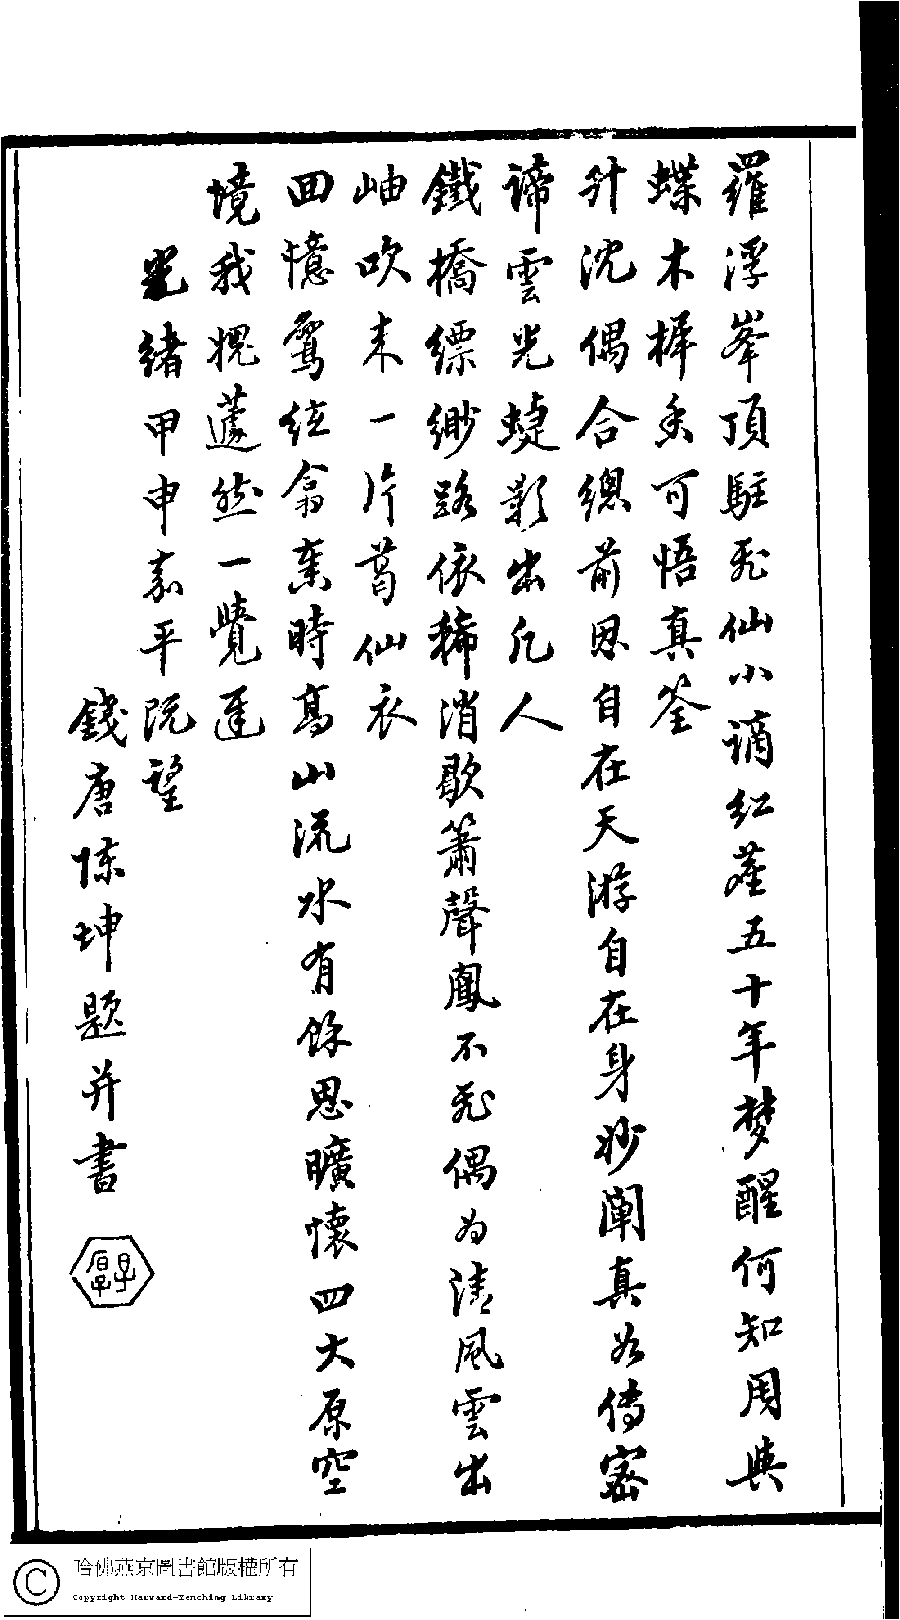 羅浮峯頂駐飛仙小謫紅塵五十年梦醒何知周與
蝶木樨香可悟真荃
升沈偶合總前因自在天游自在身妙闡真如傳密
諦雲光蜨影出凡人
鐵橋縹緲路依稀消歇簫聲鳳不飛偶为清風雲出
岫吹来一片葛仙衣
回憶鴛絃翕奏時高山流水有餘思曠懷四大原空
境我媿蘧然一覺遲
光緒甲申嘉平既望
錢唐陳坤題并書
子厚
哈佛燕京圖書館版權所有
Copyright Harvard-Yenching Library